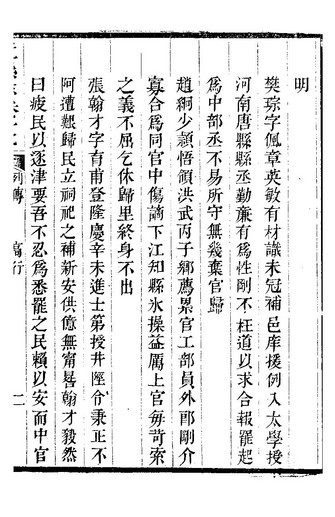 明
樊琮字佩章英敏有材識未冠補邑庠援例入太學授
河南唐縣縣丞勤廉有爲性剛不枉道以求合報罷起
爲中部丞不易所守無幾棄官歸
趙綱少穎悟領洪武丙子鄉薦累官工部員外郎剛介
寡合爲同官中傷謫下江知縣氷操益厲上官每苛索
之義不屈乞休歸里終身不出
張翰才字育甫登隆慶辛未進士第授井陘令秉正不
阿遭艱歸民立祠祀之補新安供億無甯晷翰才毅然
曰疲民以逐津要吾不忍爲悉罷之民賴以安而中官
列傳
篤行
二